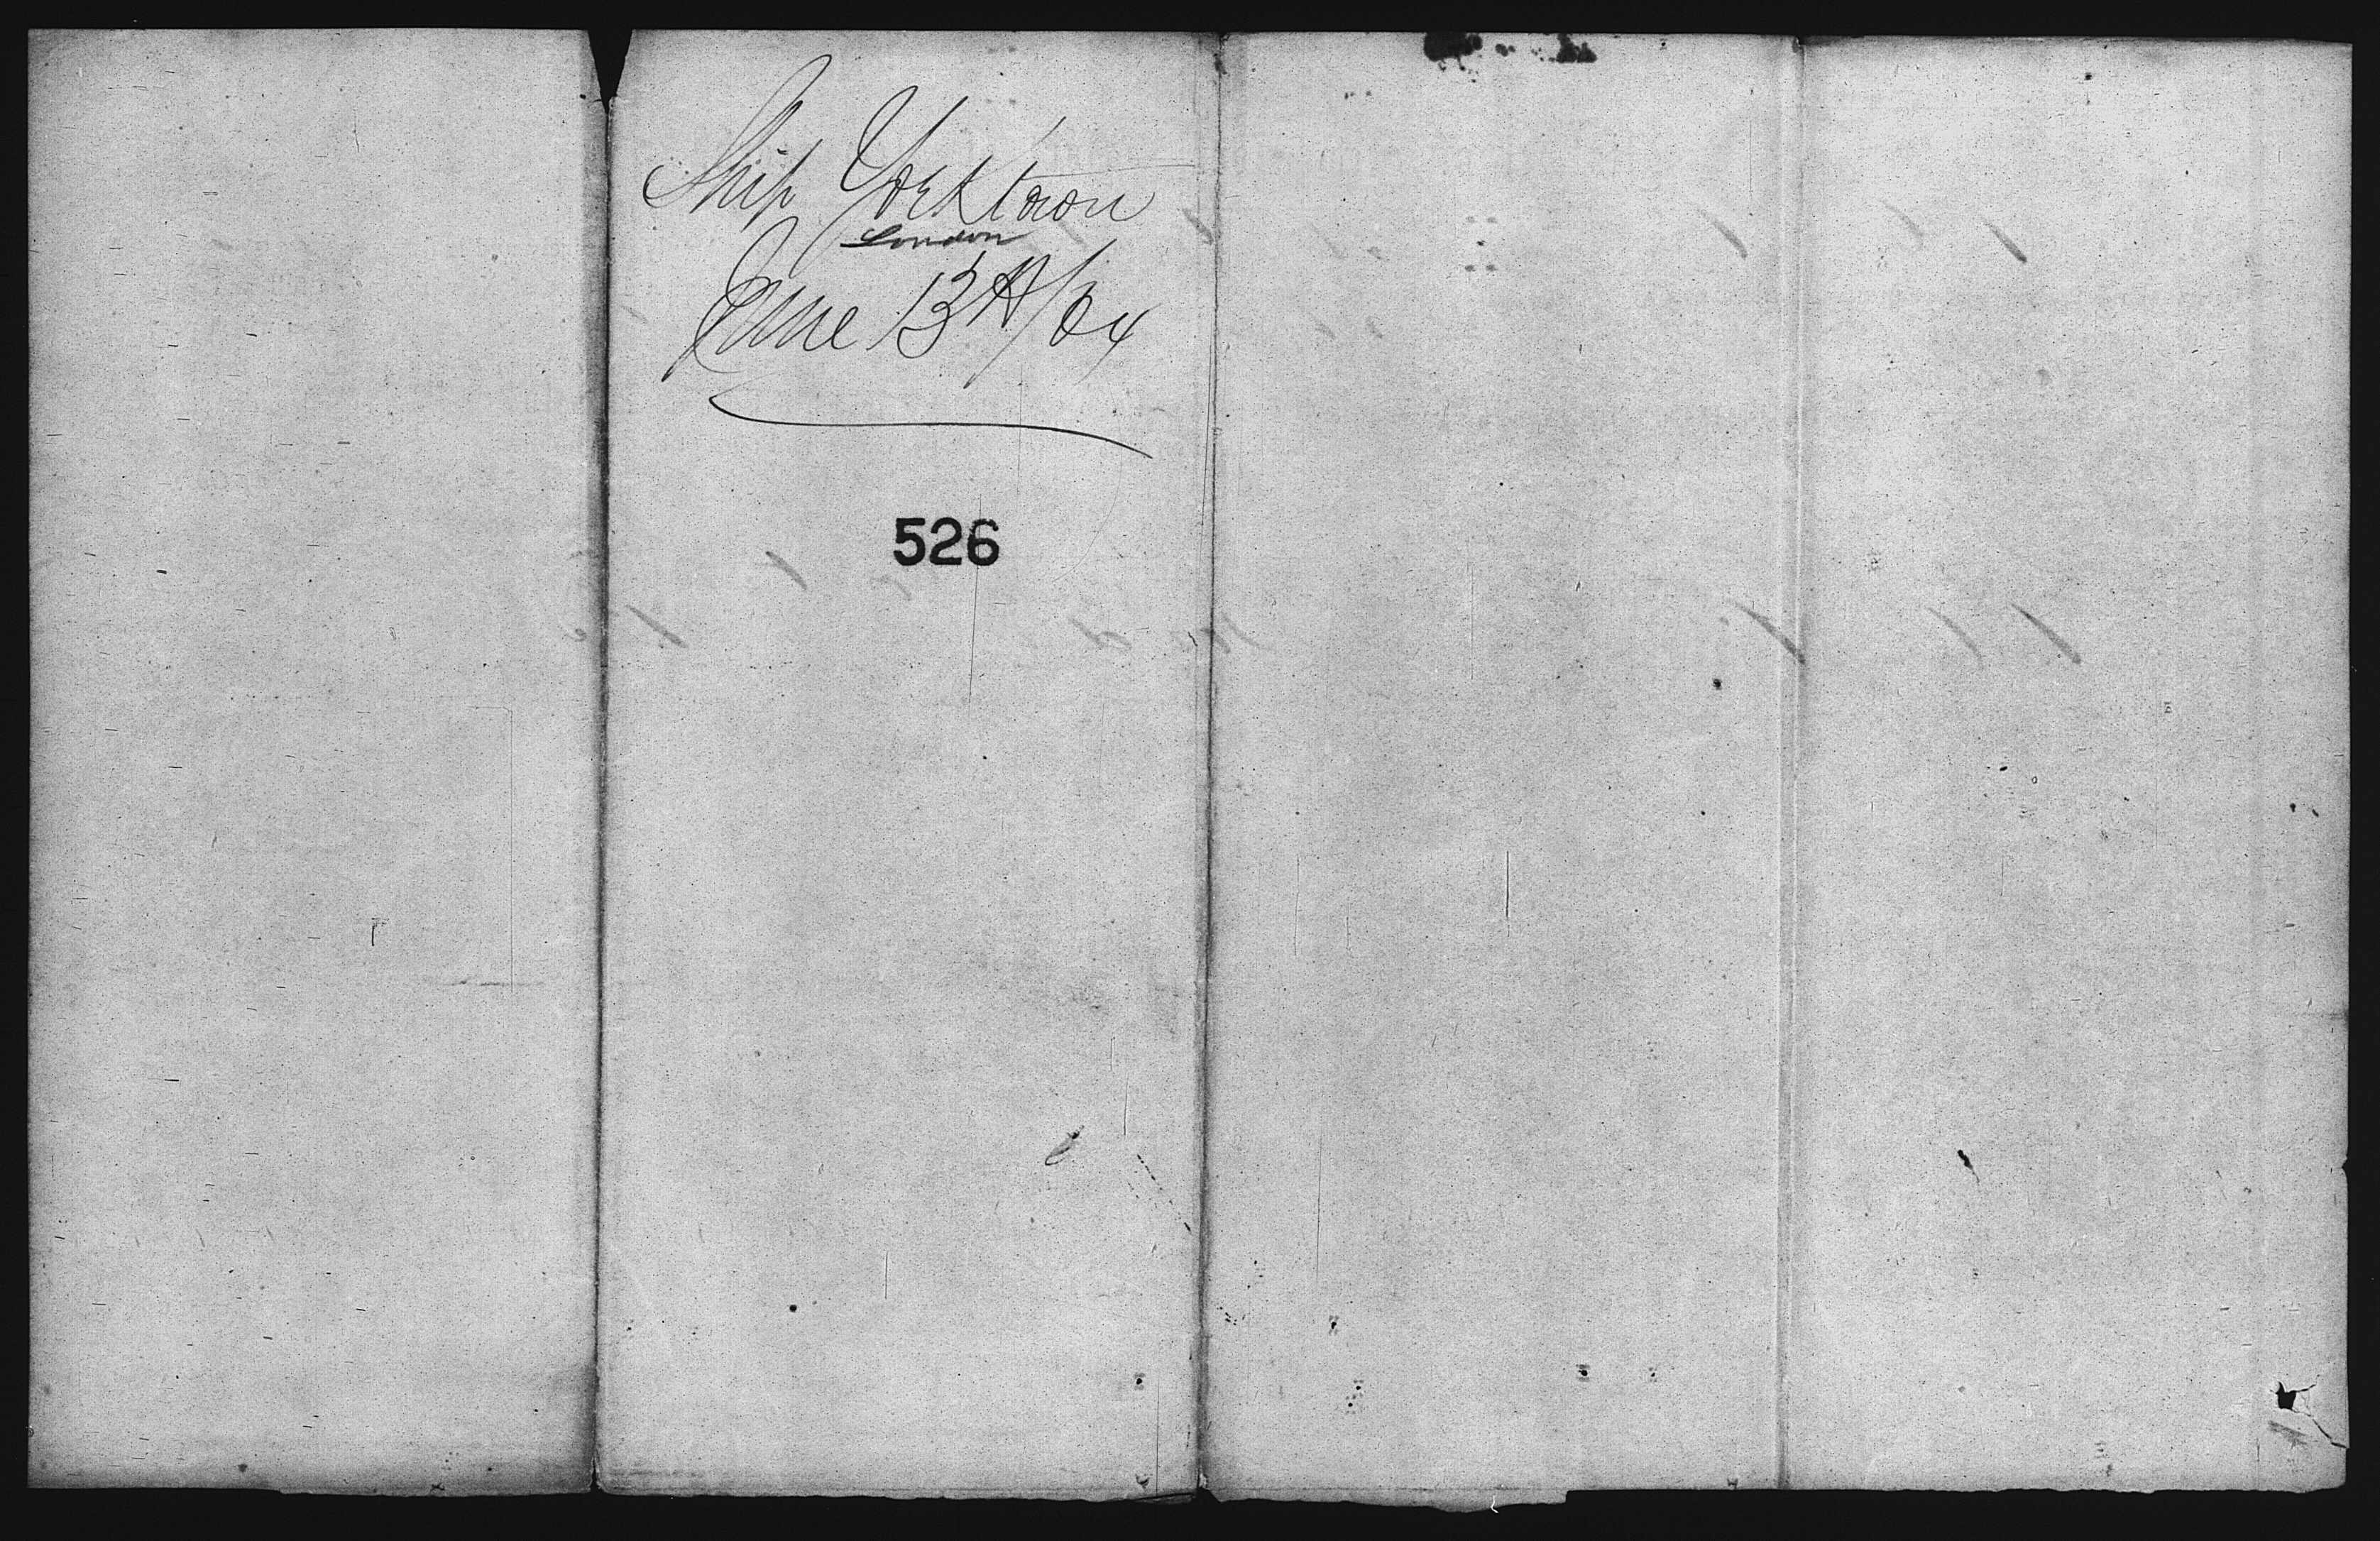 Ship Yorktown
London
June 13th/64
526